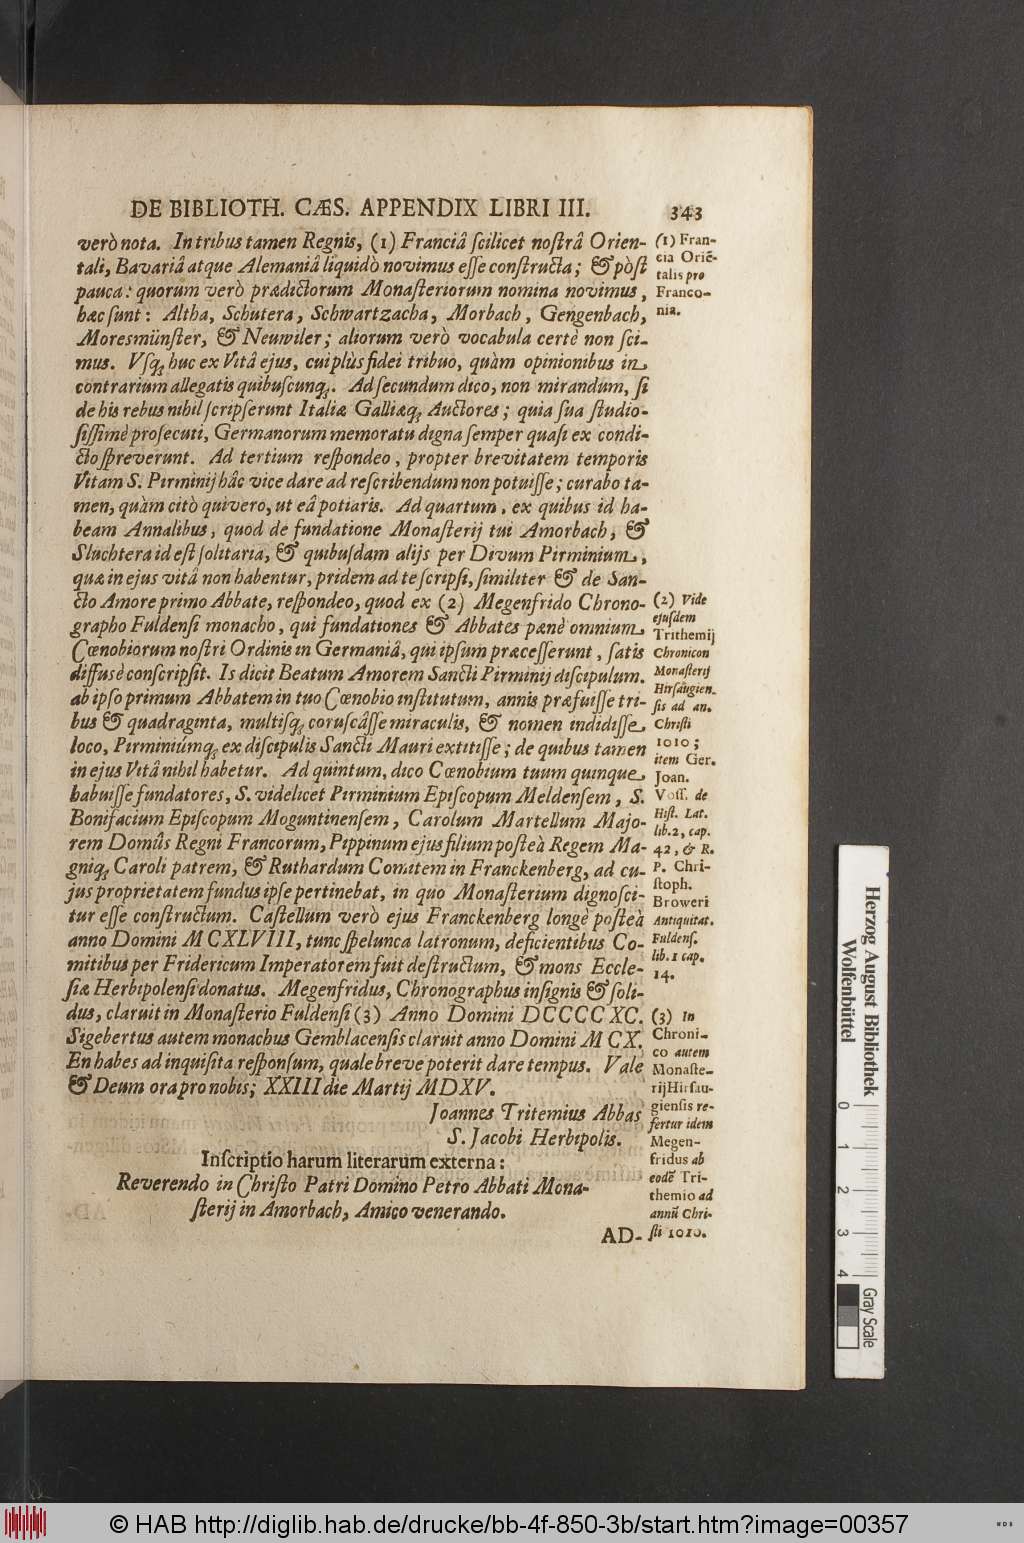 DE BIBLIOTH. CÆS. APPENDIX LIBRI III. 343
verò nota. In tribus tamen Regnis, (1) Franciâ ſcilicet noſtrâ Orien-
tali, Bavariâ atque Alemaniâ liquidò novimus eſſe conſtructa; & pòſt
pauca: quorum verò prædictorum Monaſteriorum nomina novimus,
hæc ſunt: Altha, Schutera, Schwartzacha, Morbach, Gengenbach,
Moresmünſter, & Neuwiler; aliorum verò vocabula certè non ſci-
mus. Vſq; huc ex Vitâ ejus, cui plùs fidei tribuo, quàm opinionibus in
contrarium allegatis quibuſcunq;. Ad ſecundum dico, non mirandum, ſi
de his rebus nihil ſcripſerunt Italiæ Galliæq; Auctores; quia ſua ſtudio-
ſiſſimè proſecuti, Germanorum memoratu digna ſemper quaſi ex condi-
cto ſpreverunt. Ad tertium reſpondeo, propter brevitatem temporis
Vitam S. Pirminij hâc vice dare ad reſcribendum non potuiſſe; curabo ta-
men, quàm citò quivero, ut eâ potiaris. Ad quartum, ex quibus id ha-
beam Annalibus, quod de fundatione Monaſterij tui Amorbach, &
Sluchtera id eſt ſolitaria, & quibuſdam alijs per Divum Pirminium,
quæ in ejus vitâ non habentur, pridem ad te ſcripſi, ſimiliter & de San-
cto Amore primo Abbate, reſpondeo, quod ex (2) Megenfrido Chrono-
grapho Fuldenſi monacho, qui fundationes & Abbates pænè omnium
Cœnobiorum noſtri Ordinis in Germaniâ, qui ipſum præceſſerunt, ſatis
diffusè conſcripſit. Is dicit Beatum Amorem Sancti Pirminij diſcipulum.
ab ipſo primum Abbatem in tuo Cœnobio inſtitutum, annis præfuiſſe tri-
bus & quadraginta, multiſq; coruſcâſſe miraculis, & nomen indidiſſe
loco, Pirminiúmq; ex diſcipulis Sancti Mauri extitiſſe; de quibus tamen
in ejus Vitâ nihil habetur. Ad quintum, dico Cœnobium tuum quinque
habuiſſe fundatores, S. videlicet Pirminium Epiſcopum Meldenſem, S.
Bonifacium Epiſcopum Moguntinenſem, Carolum Martellum Majo-
rem Domûs Regni Francorum, Pippinum ejus filium poſteà Regem Ma-
gniq; Caroli patrem, & Ruthardum Comitem in Franckenberg, ad cu-
jus proprietatem fundus ipſe pertinebat, in quo Monaſterium dignoſci-
tur eſſe conſtructum. Caſtellum verò ejus Franckenberg longè poſteà
anno Domini MCXLVIII, tunc ſpelunca latronum, deficientibus Co-
mitibus per Fridericum Imperatorem fuit deſtructum, & mons Eccle-
ſiæ Herbipolenſi donatus. Megenfridus, Chronographus inſignis & ſoli-
dus, claruit in Monaſterio Fuldenſi (3) Anno Domini DCCCCXC.
Sigebertus autem monachus Gemblacenſis claruit anno Domini MCX.
En habes ad inquiſita reſponſum, quale breve poterit dare tempus. Vale
& Deum ora pro nobis; XXIII die Martij MDXV.
Joannes Tritemius Abbas
S. Jacobi Herbipolis.
Inſcriptio harum literarum externa:
Reverendo in Chriſto Patri Domino Petro Abbati Mona-
ſterij in Amorbach, Amico venerando.
AD-
(1) Fran-
cia Oriẽ-
talis pro
Franco-
nia.
(2) Vide
ejuſdem
Trithemij
Chronicon
Monaſterij
Hirſaugien-
ſis ad an.
Chriſti
1010;
item Ger.
Joan.
Voſſ. de
Hiſt. Lat.
lib. 2, cap.
42, & R.
P. Chri-
ſtoph.
Broweri
Antiquitat.
Fuldenſ.
lib. 1 cap.
14.
(3) In
Chroni-
co autem
Monaſte-
rij Hirſau-
gienſis re-
fertur idem
Megen-
fridus ab
eodẽ Tri-
themio ad
annũ Chri-
ſti 1010.
Herzog August Bibliothek
Wolfenbüttel
0
1
2
3
4
Gray Scale
© HAB http://diglib.hab.de/drucke/bb-4f-850-3b/start.htm?image=00357
WDB